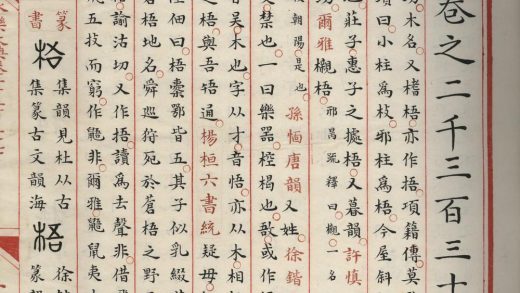 卷之二千三百三十
切木名又楮梧亦作捂項籍傳莫
曰小柱為枝邪柱為梧今屋斜
也莊子惠子之據梧又暮韻許慎
切爾雅櫬梧邢昺疏釋曰櫬一名
朝陽是也孫愐唐韻又姓徐鍇
禁也一曰樂器椌楬也敔或作梧
吳木也字从才音悟亦从木相
梧與吾啎通楊桓六書統疑毋
佃曰梧橐鄂皆五其子似乳綴其
梧地名舜巡狩死於蒼梧之野
諭沽切又作捂讀為去聲非借
五技而窮作鼯非爾雅鼯鼠夷
篆書
梧集韻見杜从古
集篆古文韻海
梧